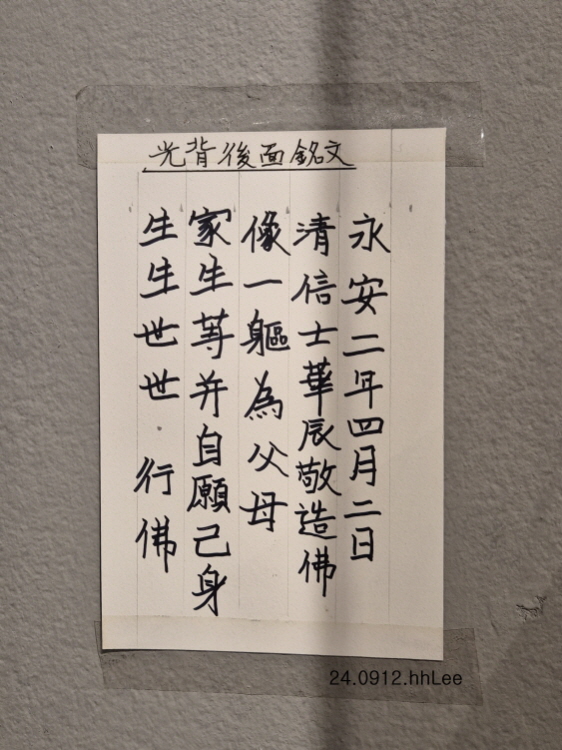 光背後面銘文
永安二年四月二日
清信士華辰敬造佛
像一軀為父母
家生等并自願己身
生生世世 行佛
24.0912.hhLee